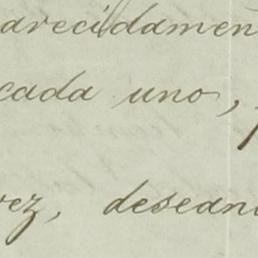 arecidamen
cada uno,
vez, desean